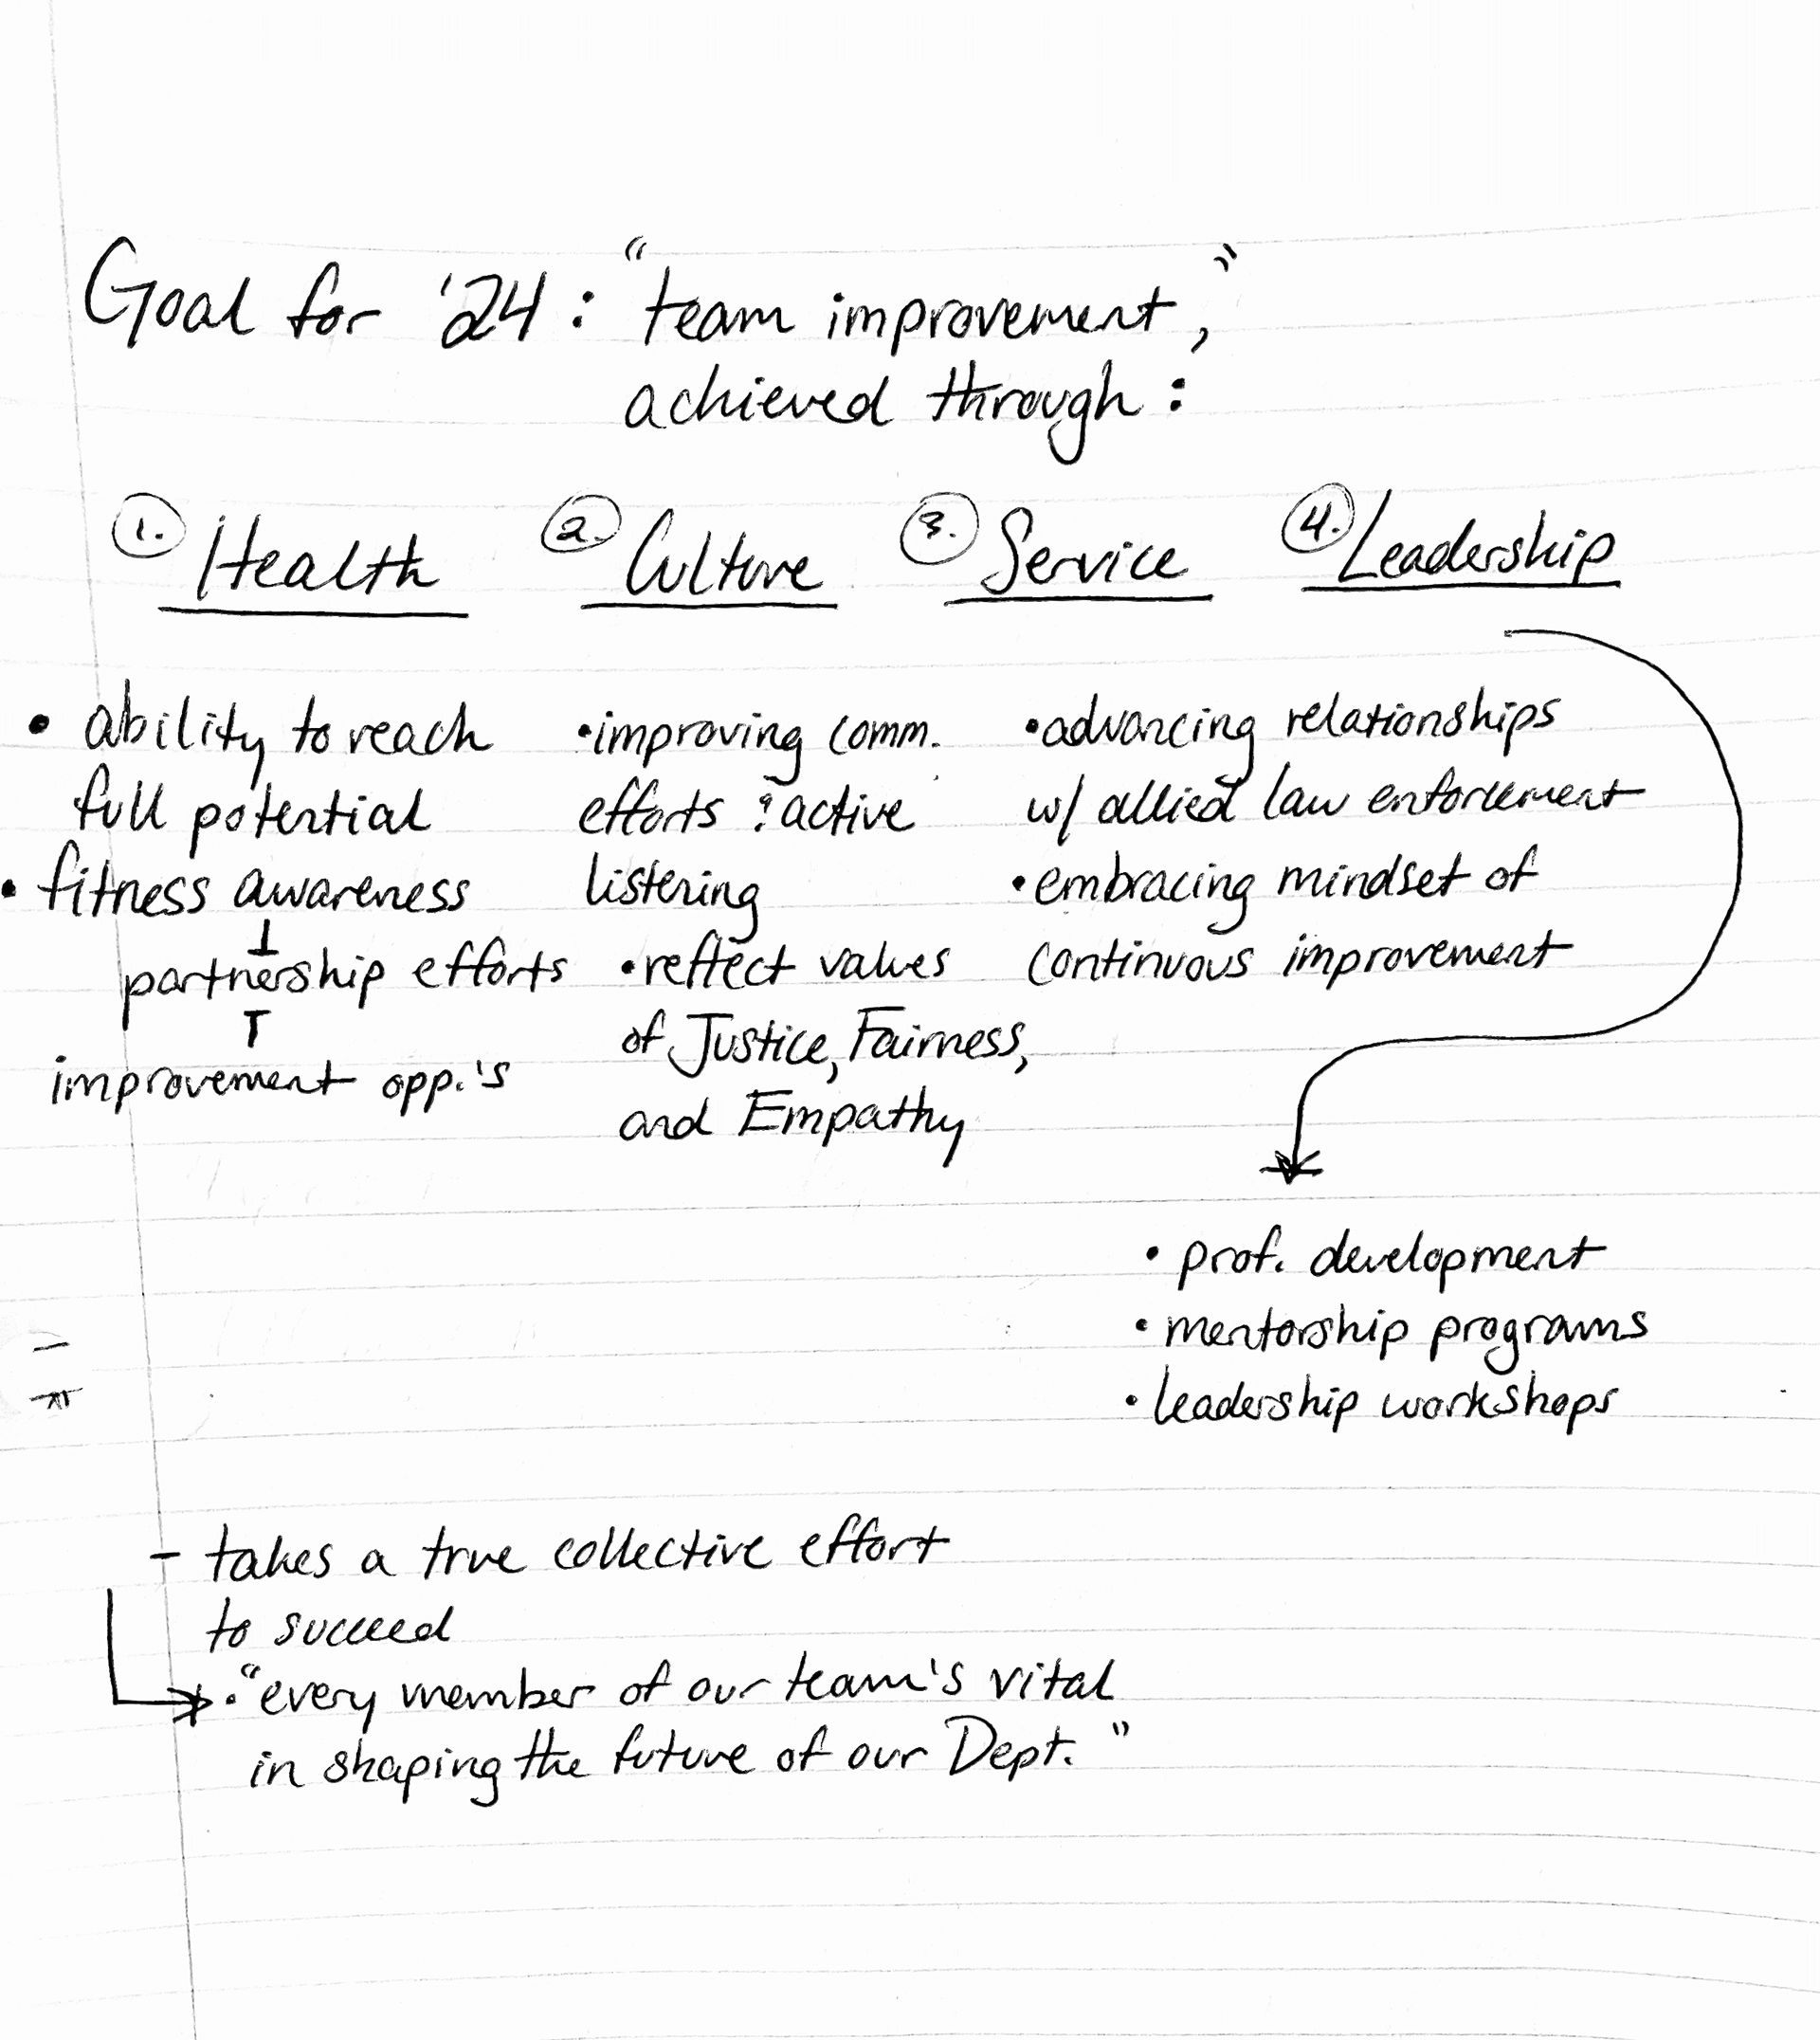 Goal for '24 : "team improvement,"
achieved through :
1. Health
2. Culture
3. Service
4. Leadership
• ability to reach
full potential
• fitness awareness
partnership efforts
improvement opp.'s
• improving comm.
efforts & active
listening
• reflect values
of Justice, Fairness,
and Empathy
• advancing relationships
w/ allied law enforcement
• embracing mindset of
continuous improvement
• prof. development
• mentorship programs
• leadership workshops
- takes a true collective effort
to succeed
• "every member of our team's vital
in shaping the future of our Dept."